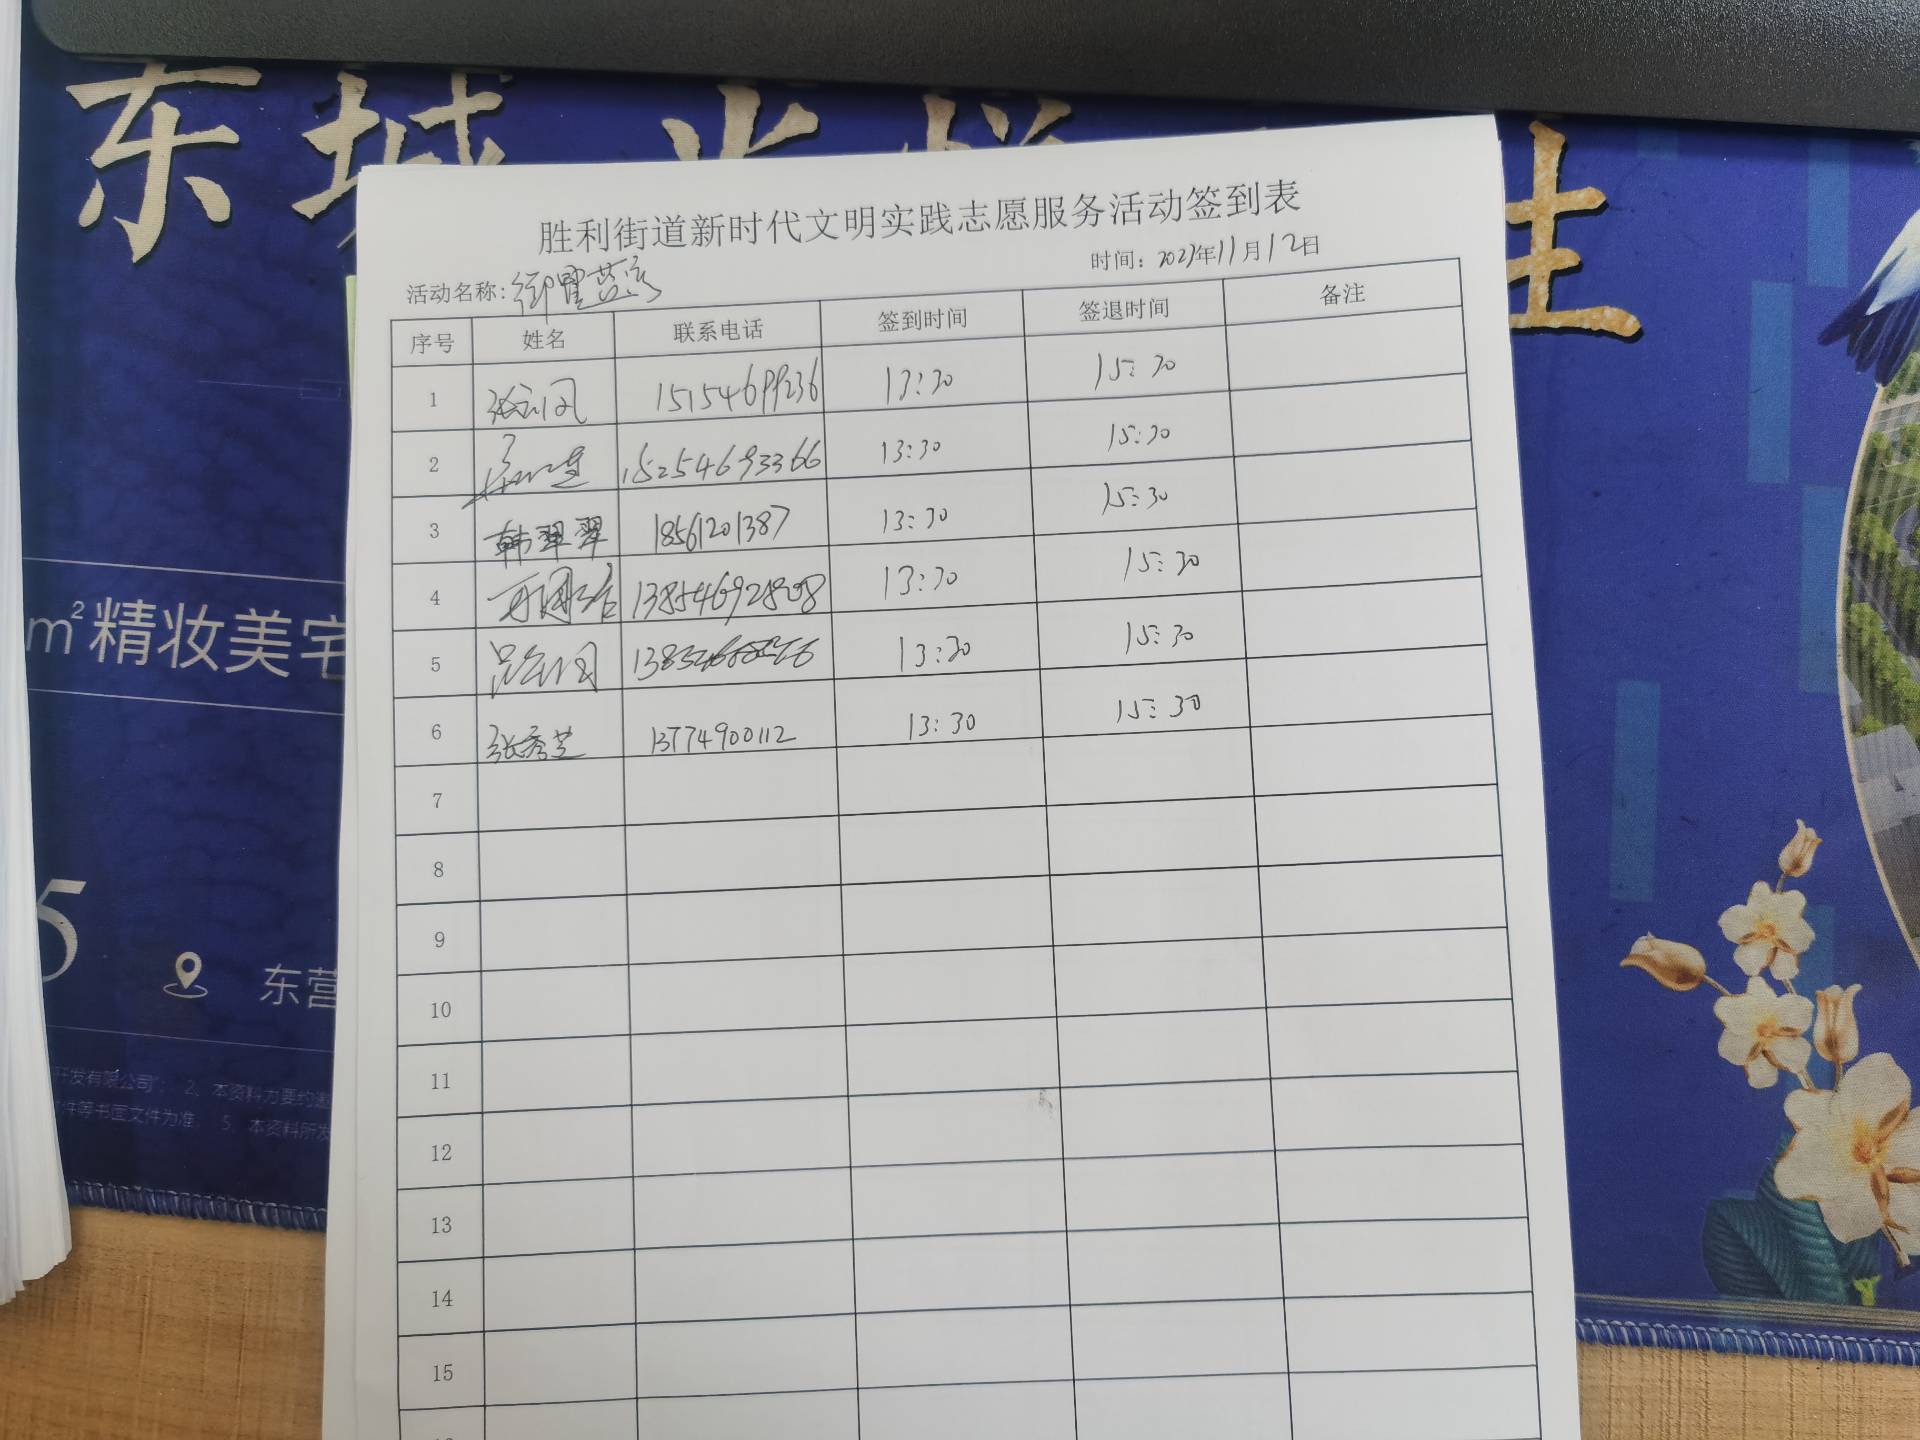 东城
m²精妆美宅
5
东营
开发有限公司"; 2、本资料为要约邀
件等书面文件为准。 5、本资料所发
胜利街道新时代文明实践志愿服务活动签到表
活动名称: 时间: 2023年11月12日
序号 姓名 联系电话 签到时间 签退时间 备注
1 15154699236 13:30 15:30
2 15254693366 13:30 15:30
3 韩翠翠 18561201387 13:30 15:30
4 13:30 15:30
5 13:30 15:30
6 张秀芝 13774900112 13:30 15:30
7
8
9
10
11
12
13
14
15